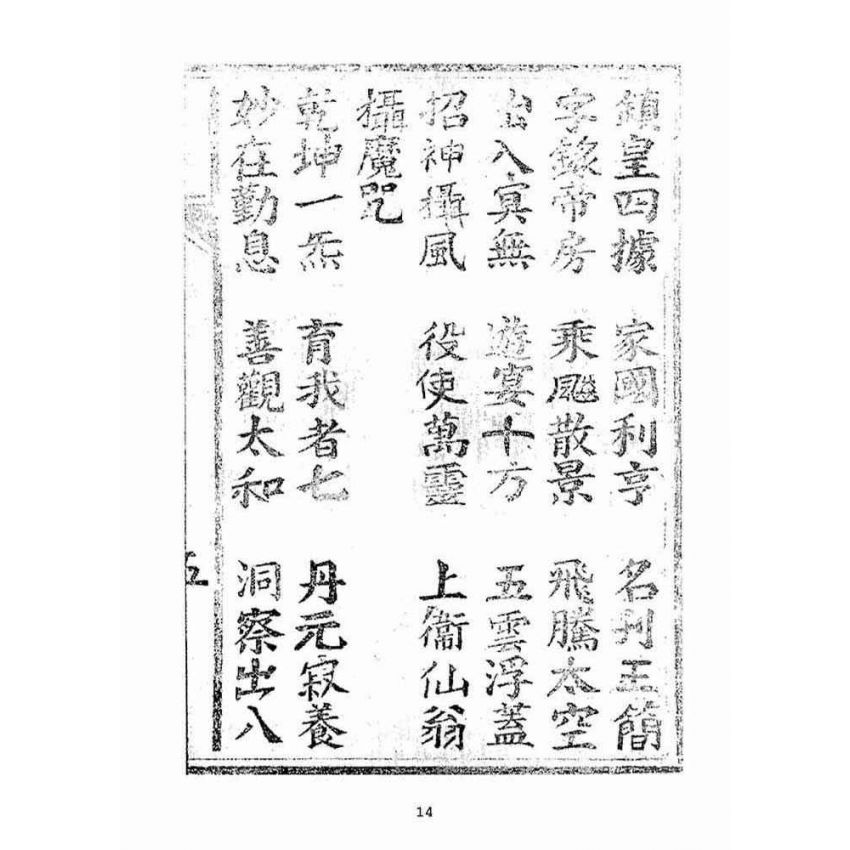 鎮皇四據 家國利亨 名刊玉簡
字錄帝房 乘飈散景 飛騰太空
出入冥無 遊宴十方 五雲浮蓋
招神攝風 役使萬靈 上衞仙翁
攝魔咒
乾坤一炁 育我者七 丹元寂養
妙在勤息 善觀太和 洞察出入
五
14